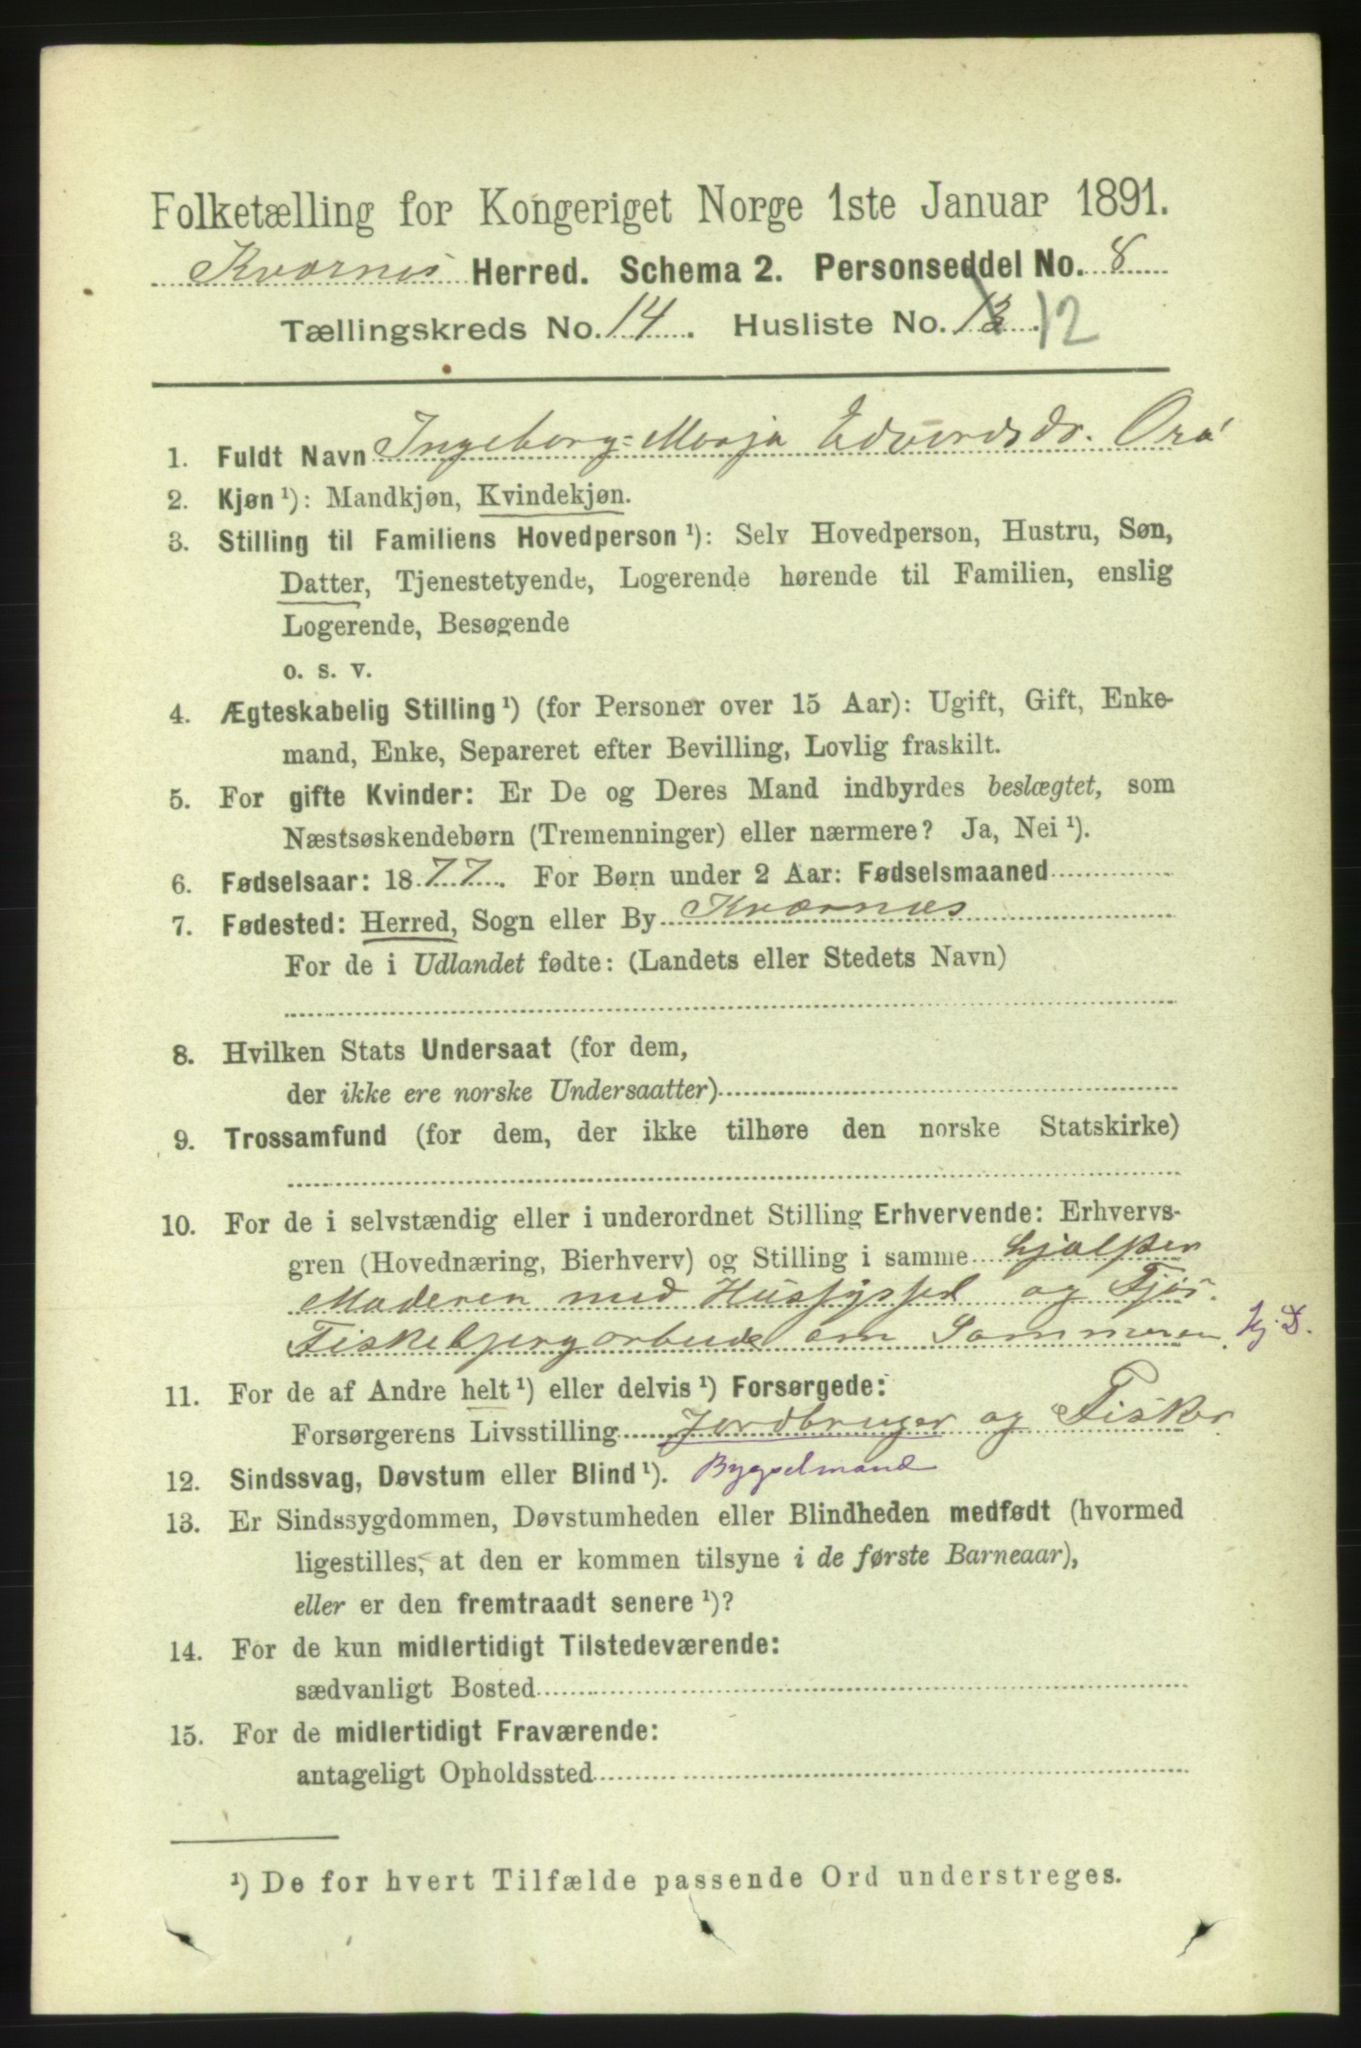 Folketælling for Kongeriget Norge 1ste Januar 1891.
Kværnes Herred. Schema 2. Personseddel No. 8
Tællingskreds No. 14. Husliste No. 12
1. Fuldt Navn Ingeborg=Marja Edvardsdr. Orö
2. Kjøn ¹): Mandkjøn, Kvindekjøn.
3. Stilling til Familiens Hovedperson ¹): Selv Hovedperson, Hustru, Søn,
Datter, Tjenestetyende, Logerende hørende til Familien, enslig
Logerende, Besøgende
o. s. v.
4. Ægteskabelig Stilling ¹) (for Personer over 15 Aar): Ugift, Gift, Enke-
mand, Enke, Separeret efter Bevilling, Lovlig fraskilt.
5. For gifte Kvinder: Er De og Deres Mand indbyrdes beslægtet, som
Næstsøskendebørn (Tremenninger) eller nærmere? Ja, Nei ¹).
6. Fødselsaar: 1877. For Børn under 2 Aar: Fødselsmaaned
7. Fødested: Herred, Sogn eller By Kværnæs
For de i Udlandet fødte: (Landets eller Stedets Navn)
8. Hvilken Stats Undersaat (for dem,
der ikke ere norske Undersaatter)
9. Trossamfund (for dem, der ikke tilhøre den norske Statskirke)
10. For de i selvstændig eller i underordnet Stilling Erhvervende: Erhvervs-
gren (Hovednæring, Bierhverv) og Stilling i samme hjælper
Moderen med Huusgssel og Fjøs.
Fiskebjergarbeide om Sommeren. hj. D.
11. For de af Andre helt ¹) eller delvis ¹) Forsørgede:
Forsørgerens Livsstilling Jordbruger og Fisker
12. Sindssvag, Døvstum eller Blind ¹). Bygselmand
13. Er Sindssygdommen, Døvstumheden eller Blindheden medfødt (hvormed
ligestilles, at den er kommen tilsyne i de første Barneaar),
eller er den fremtraadt senere ¹)?
14. For de kun midlertidigt Tilstedeværende:
sædvanligt Bosted
15. For de midlertidigt Fraværende:
antageligt Opholdssted
¹) De for hvert Tilfælde passende Ord understreges.